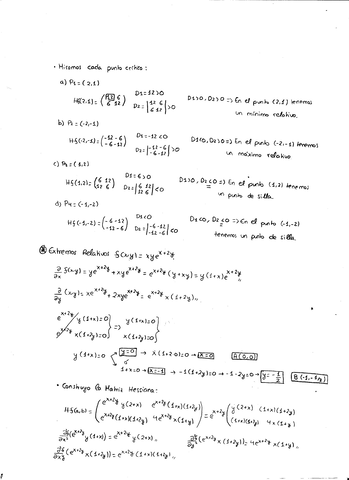 · Miramos cada punto crítico:
a) P₁ = (2,1)
Hf(2,1) = (12 6 / 6 12) D₁ = 12 > 0 D₂ = |12 6 / 6 12| > 0 D₁>0, D₂>0 => En el punto (2,1) tenemos un mínimo relativo.
b) P₂ = (-2,-1)
Hf(-2,-1) = (-12 -6 / -6 -12) D₁ = -12 < 0 D₂ = |-12 -6 / -6 -12| > 0 D₁<0, D₂>0 => En el punto (-2,-1) tenemos un máximo relativo
c) P₃ (1,2)
Hf(1,2) = (6 12 / 12 6) D₁ = 6 > 0 D₂ = |6 12 / 12 6| < 0 D₁>0, D₂≤0 => En el punto (1,2) tenemos un punto de silla.
d) P₄ = (-1,-2)
Hf(-1,-2) = (-6 -12 / -12 -6) D₁<0 D₂ = |-6 -12 / -12 -6| < 0 D₁≤0, D₂<0 => En el punto (-1,-2) tenemos un punto de silla.
Extremos Relativos f(x,y) = xy e^(x+2y)
∂/∂x f(x,y) = ye^(x+2y) + xye^(x+2y) = e^(x+2y) (y+xy) = y(1+x)e^(x+2y)
∂/∂y (x,y) = xe^(x+2y) + 2xye^(x+2y) = e^(x+2y) x(1+2y)
e^(x+2y) y(1+x)=0 } => y(1+x)=0 }
e^(x+2y) x(1+2y)=0 } x(1+2y)=0 }
y(1+x)=0 y=0 → x(1+2·0)=0 → x=0 A(0,0)
o'
1+x=0 → x=-1 → -1(1+2y)=0 → -1-2y=0 → y=-1/2 B(-1,-1/2)
· Construyo la Matriz Hessiana:
Hf(x,y) = (e^(x+2y) y(2+x) e^(x+2y)(1+x)(1+2y) / e^(x+2y)(1+x)(1+2y) 4e^(x+2y) x(1+y)) = e^(x+2y) (y(2+x) (1+x)(1+2y) / (1+x)(1+2y) 4x(1+y))